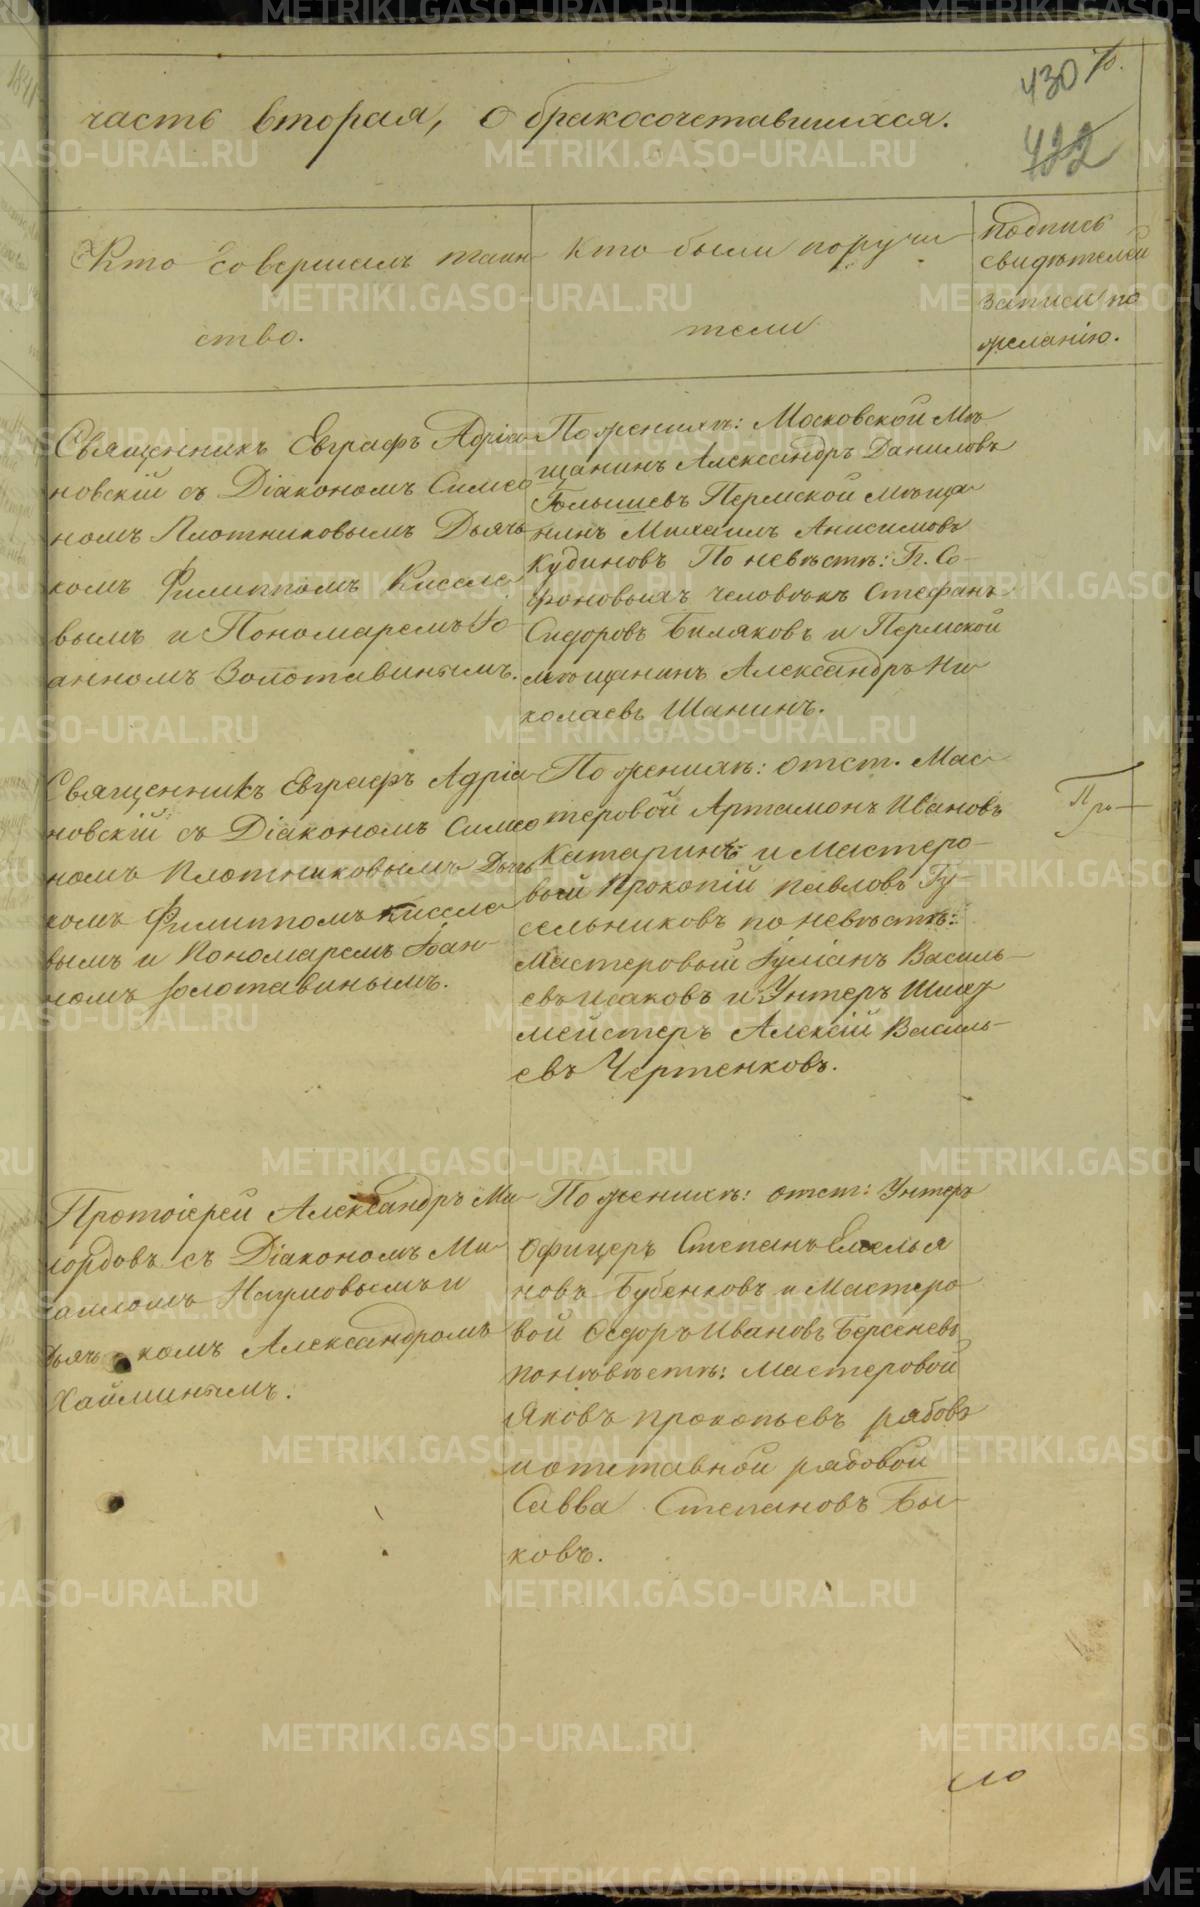 430
часть вторая, о бракосочетавшихся.
422
Кто совершалъ таин-
ство.
Кто были поручи-
тели
подпись
свидѣтелей
записи по
желанію.
Священникъ Евграфъ Адріа-
новскій съ Діакономъ Симео-
номъ Плотниковымъ Дьяч-
комъ Филиппомъ Кисele-
вымъ и Пономаремъ Іо-
анномъ Золотавинымъ.
По женихѣ: Московской Мѣ-
щанинъ Александръ Даниловъ
Голышевъ Пермской мѣща-
нинъ Михаилъ Анисимовъ
Кудиновъ По невѣстѣ: Гг. Со-
фроновыхъ человѣкъ Стефанъ
Сидоровъ Биляковъ и Пермской
мѣщанинъ Александръ Ни-
колаевъ Шанинъ.
Священникъ Евграфъ Адріа-
новскій съ Діакономъ Симео-
номъ Плотниковымъ Дьяч-
комъ Филиппомъ Кисele-
вымъ и Пономаремъ Іоан-
номъ Золотавинымъ.
По женихѣ: отст. Мас-
теровой Артамонъ Ивановъ
Катаринъ и Мастеро-
вый Прокопій павловъ Гу-
сельниковъ по невѣстѣ:
Мастеровый Іуліанъ Василь-
евъ Исаковъ и Унтеръ Шихт-
мейстеръ Алексій Василь-
евъ Чертенковъ.
Протоіерей Александръ Ми-
лордовъ съ Діакономъ Ми-
хаиломъ Наумовымъ и
Дьяч-комъ Александромъ
Хайминымъ.
По женихѣ: отст: Унтеръ
Офицеръ Степанъ Емелья-
новъ Бубенковъ и Мастеро-
вой Ѳедоръ Ивановъ Берсеневъ
по невѣстѣ: Мастеровой
Яковъ прокопьевъ рябовъ
и отставной рядовой
Савва Степановъ Бы-
ковъ.